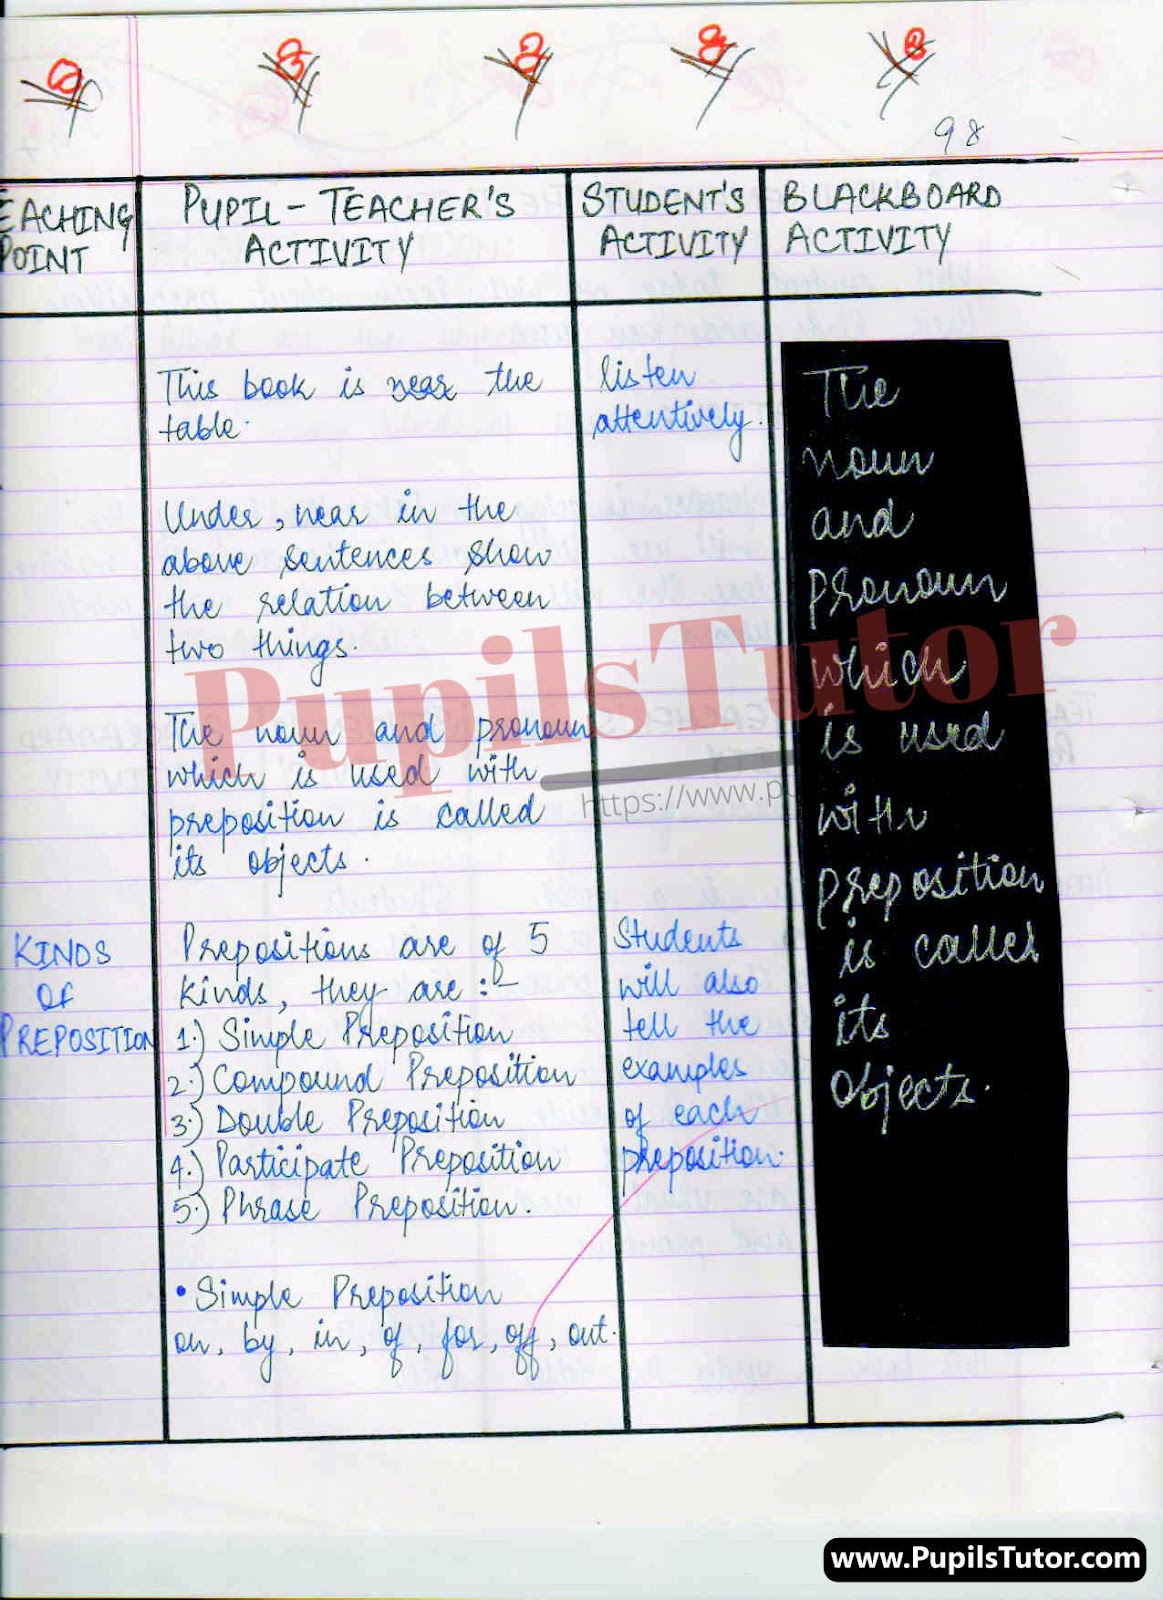 98
EACHING
POINT
PUPIL - TEACHER'S
ACTIVITY
STUDENT'S
ACTIVITY
BLACKBOARD
ACTIVITY
This book is near the
table.
listen
attentively.
Under, near in the
above sentences show
the relation between
two things.
The noun and pronoun
which is used with
preposition is called
its objects.
KINDS
OF
PREPOSITION
Prepositions are of 5
kinds, they are :-
1.) Simple Preposition
2.) Compound Preposition
3.) Double Preposition
4.) Participate Preposition
5.) Phrase Preposition.
• Simple Preposition
on, by, in, of, for, off, out.
Students
will also
tell the
examples
of each
preposition.
The
noun
and
pronoun
which
is used
with
preposition
is called
its
objects.
PupilsTutor
https://www.pu
www.PupilsTutor.com